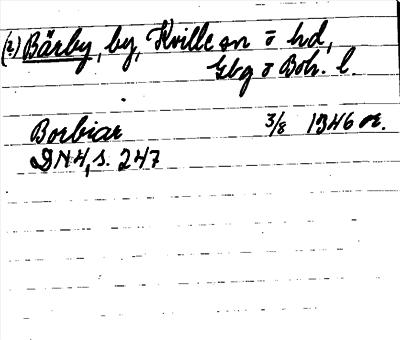 (2.) Bärby, by, Kville sn o hd,
Gbg o Boh. l.
Borbiar 3/8 1346 or.
DN 4, s. 247